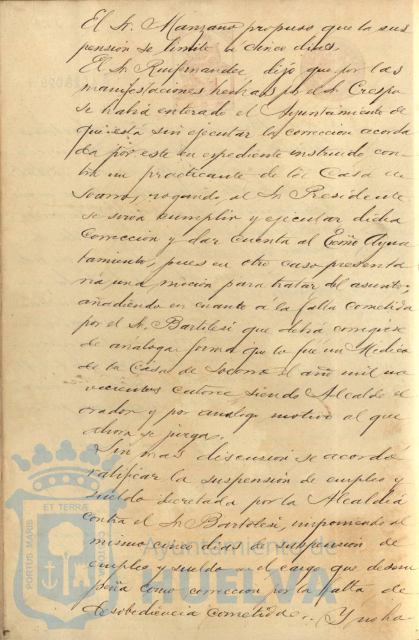 El Sr. Manzano propuso que la sus
pensión se limite a cinco dias.
El Sr. Ruifernandez dijo que por las
manifestaciones hechas por el Sr. Crespo
se habrá enterado el Ayuntamiento de
que está sin ejecutar la corrección acorda
da por este en expediente instruido con
tra un practicante de la Casa de
Socorro, rogando al Sr. Presidente
se sirva cumplir y ejecutar dicha
corrección y dar cuenta al Excmo Ayun
tamiento, pues en otro caso presenta
rá una moción para tratar del asunto y
añadiendo en cuanto á la falta cometida
por el Sr. Bartolesi que debrá corregirse
de análoga forma que lo fué un Medico
de la Casa de Socorro el año mil no
vecientos catorce, siendo Alcalde el
orador y por analogo motivo al que
ahora se juzga.
Sin mas discusion se acordó
ratificar la suspensión de empleo y
sueldo decretada por la Alcaldia
contra el Sr. Bartolesi, imponiendo al
mismo cinco dias de suspensión de
empleo y sueldo en el cargo que desem
peña como corrección por la falta de
desobediencia cometida. Y no ha
PORTUS MARIS ET TERRAE CUSTODIA
Ayuntamiento de
HUELVA